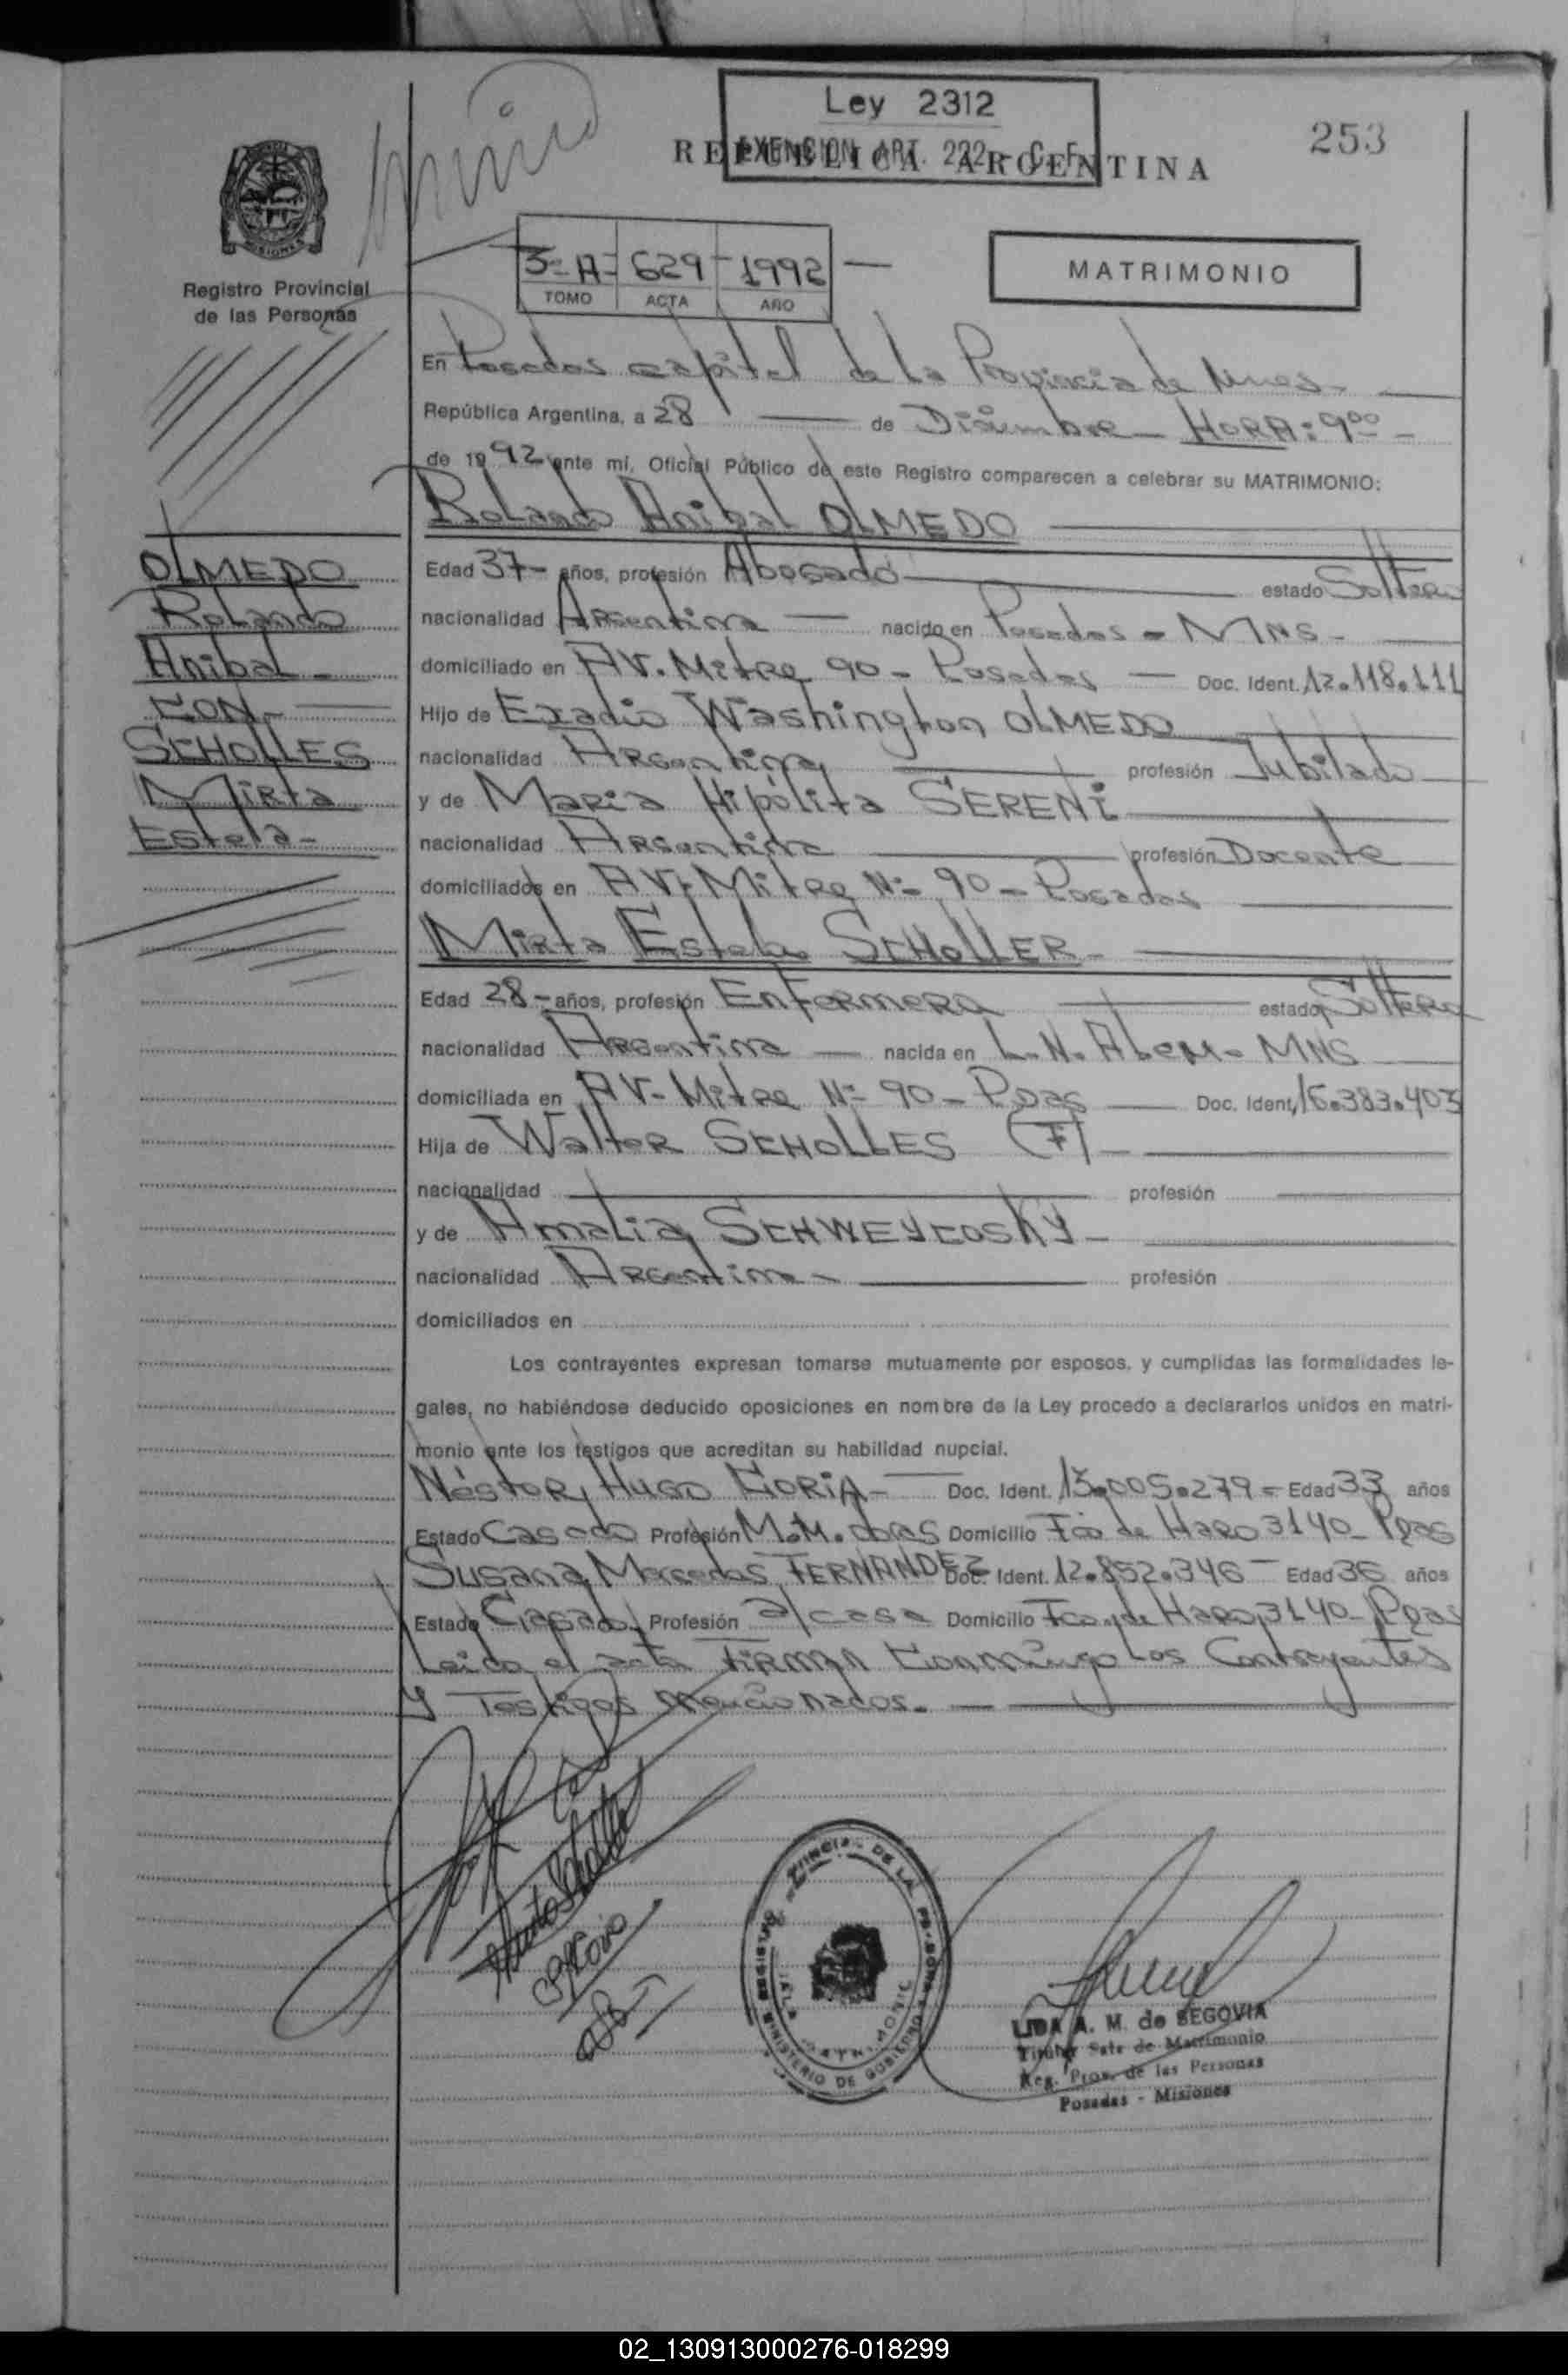 Ley 2312
EXENCION ART. 222 - C. F.
REPUBLICA ARGENTINA
253
3=A= 629 - 1992 —
TOMO ACTA AÑO
MATRIMONIO
Registro Provincial
de las Personas
En Posadas capital de la Provincia de Mnes-
República Argentina, a 28 — de Diciembre - HORA: 9⁰⁰ -
de 1992 ante mi, Oficial Público de este Registro comparecen a celebrar su MATRIMONIO:
Rolando Anibal OLMEDO
OLMEDO
Rolando
Anibal -
CON -
SCHOLLES
Mirta
Estela-
Edad 37- años, profesión Abogado estado Soltero
nacionalidad Argentina — nacido en Posadas - MNS -
domiciliado en AV. Mitre 90 - Posadas — Doc. Ident. 12.118.111
Hijo de Eradio Washington OLMEDO
nacionalidad Argentina profesión Jubilado
y de Maria Hipólita SERENI
nacionalidad Argentina profesión Docente
domiciliados en AV. Mitre Nº 90 - Posadas
Mirta Estela SCHOLLER -
Edad 28- años, profesión Enfermera estado Soltera
nacionalidad Argentina — nacida en L.N. Alem - MNS
domiciliada en AV- Mitre Nº 90 - Pdas — Doc. Ident. 16.383.403
Hija de Walter SCHOLLES (F) -
nacionalidad profesión
y de Amalia SCHWEYCOSKY -
nacionalidad Argentina - profesión
domiciliados en
Los contrayentes expresan tomarse mutuamente por esposos, y cumplidas las formalidades le-
gales, no habiéndose deducido oposiciones en nombre de la Ley procedo a declararlos unidos en matri-
monio ante los testigos que acreditan su habilidad nupcial.
Néstor Hugo CORIA - Doc. Ident. 13.005.279 = Edad 33 años
Estado Casado Profesión M.M. obras Domicilio Fco de Haro 3140 - Pdas
Susana Mercedes FERNANDEZ Doc. Ident. 12.852.346 - Edad 36 años
Estado Casada Profesión a/casa Domicilio Fco de Haro 3140 - Pdas
Leida el acta FIRMAN Conmigo Los Contrayentes
y Testigos Mencionados. —
REGISTRO PROVINCIAL DE LAS PERSONAS
MINISTERIO DE GOBIERNO
LIDA A. M. de SEGOVIA
Titular Sate de Matrimonio
Reg. Prov. de las Personas
Posadas - Misiones
02_130913000276-018299